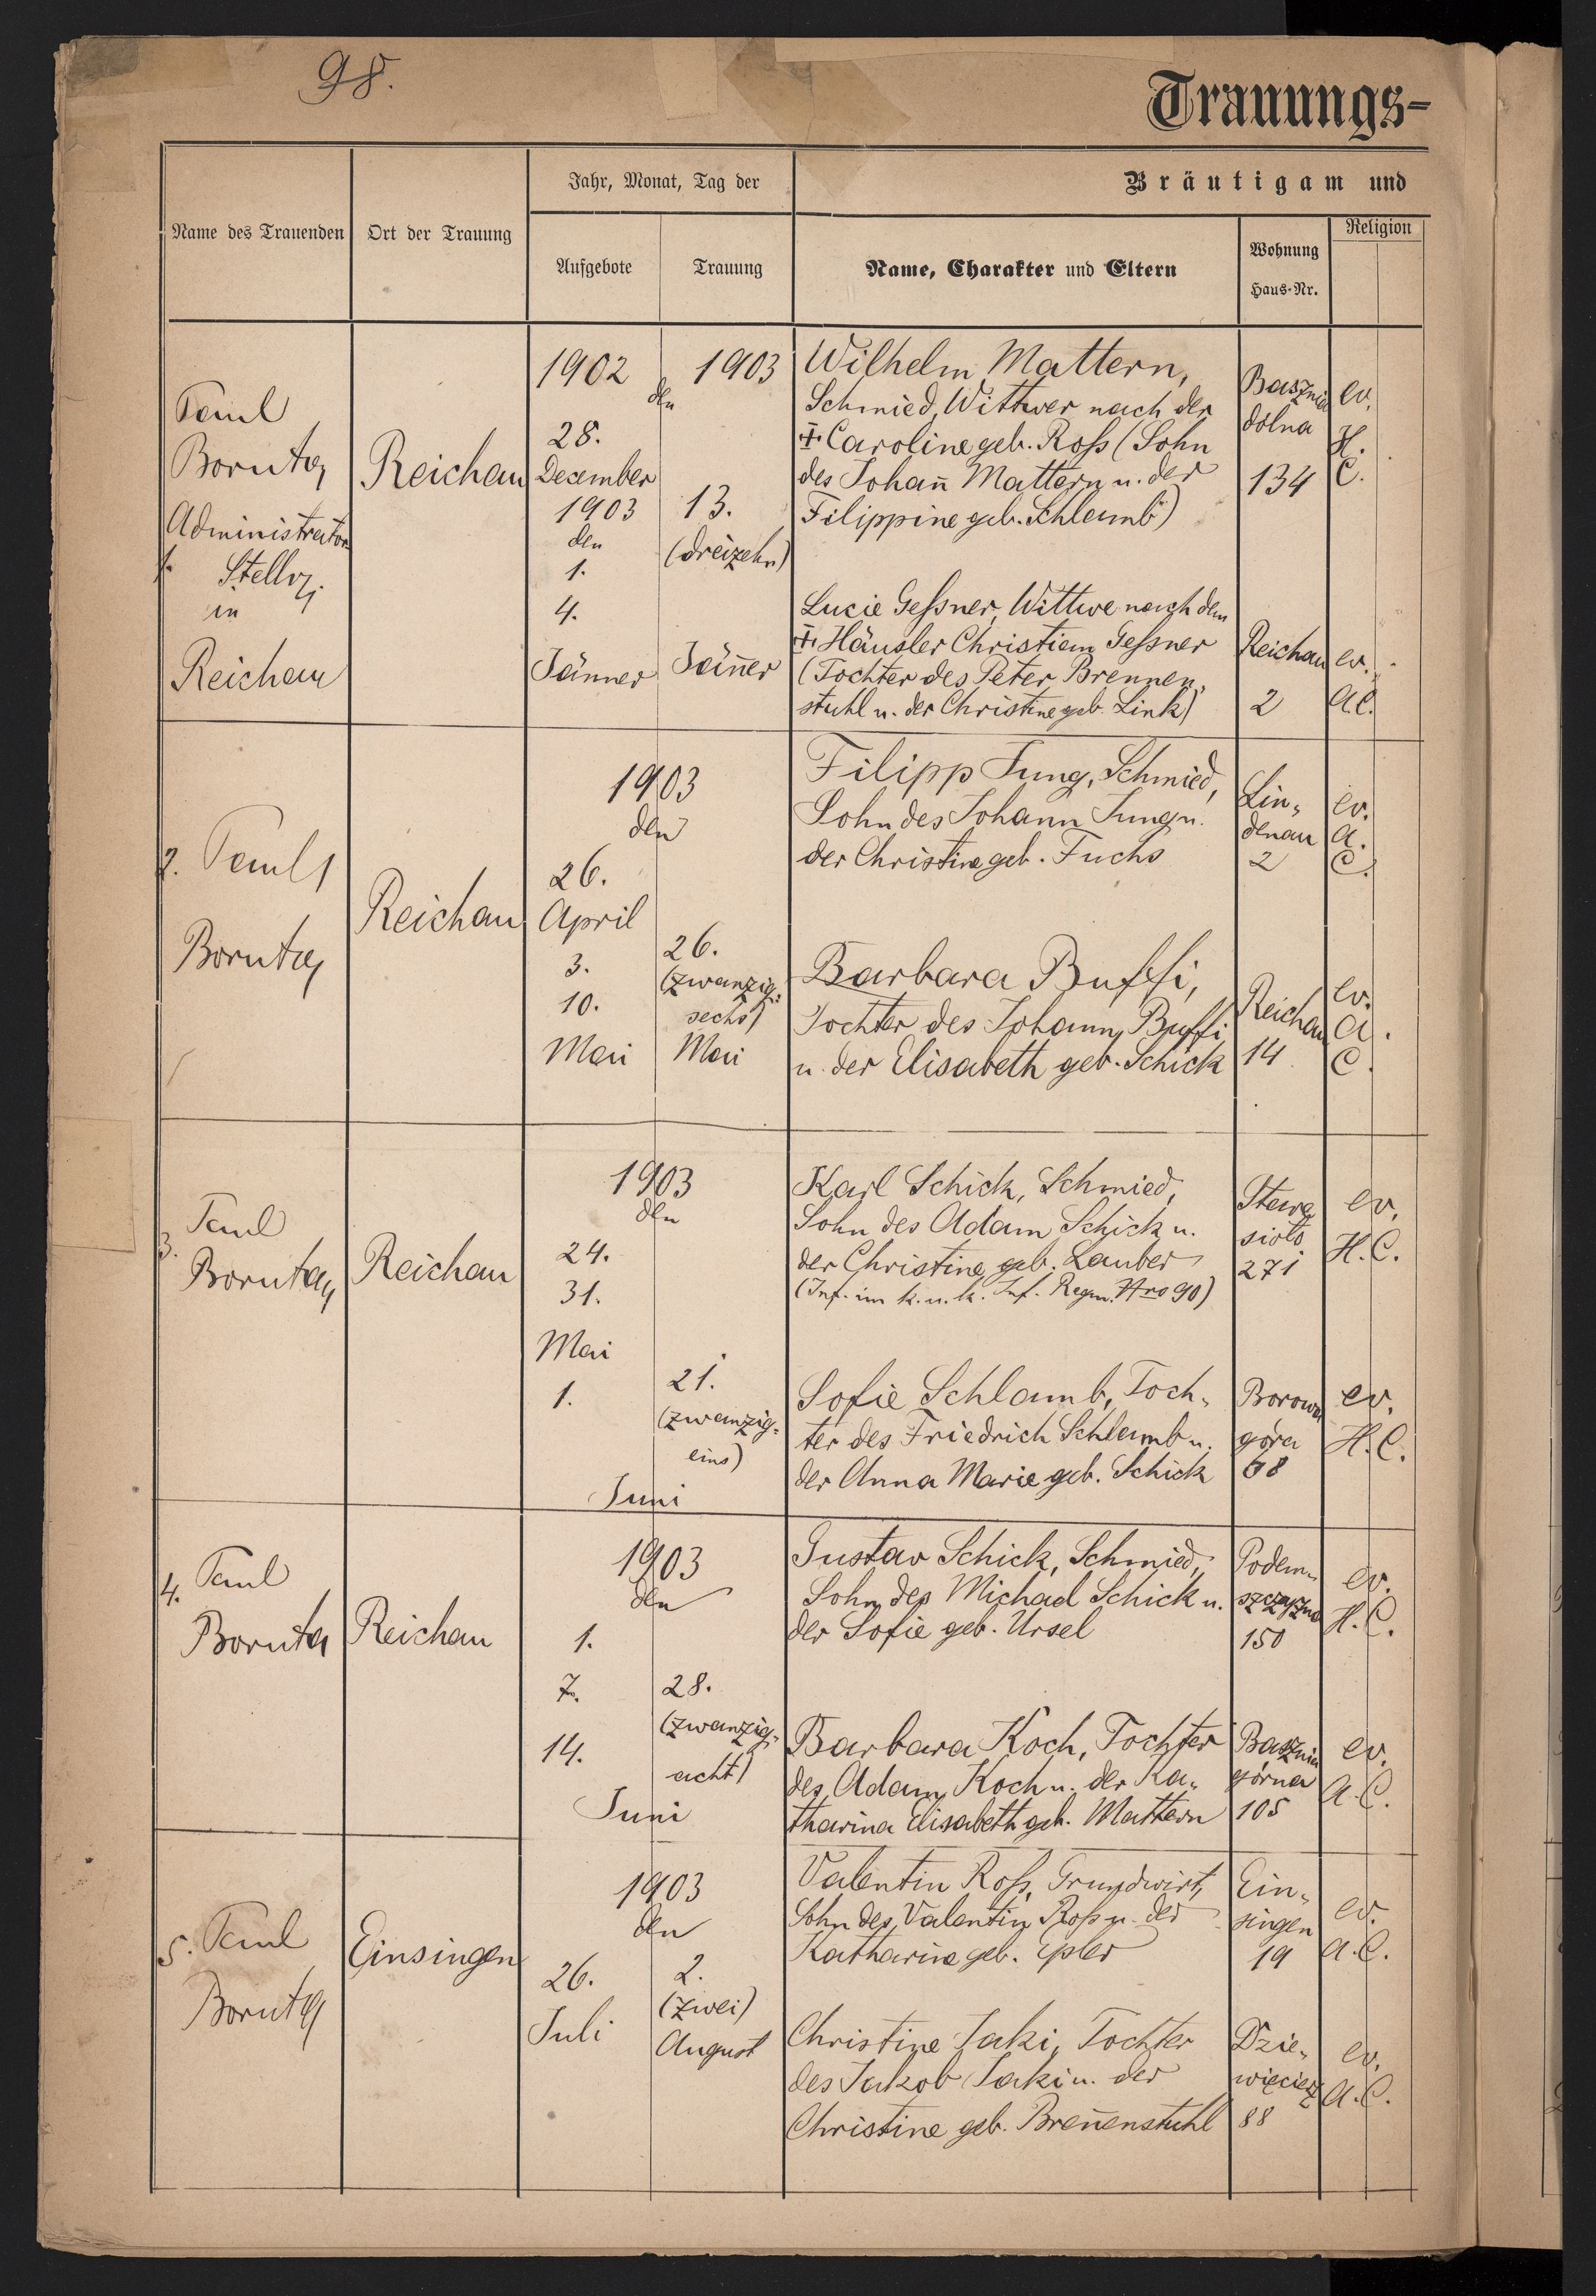 98.
Trauungs-
Name des Trauenden
Ort der Trauung
Jahr, Monat, Tag der
Aufgebote
Trauung
Bräutigam und
Name, Charakter und Eltern
Wohnung
Haus-Nr.
Religion
1.
Paul
Boruta
Administrator
Stellv.
in
Reichau
Reichau
1902
den
28.
December
1903
den
1.
4.
Jänner
1903
13.
(dreizehn)
Jän̄er
Wilhelm Mattern,
Schmied, Wittwer nach der
+ Caroline geb. Roß (Sohn
des Johan̄ Mattern u. der
Filippine geb. Schlamb)
Basznia
dolna
134
ev.
H.
C.
Lucie Geßner, Wittwe nach dem
+ Häusler Christian Geßner
(Tochter des Peter Brennen-
stuhl u. der Christine geb. Link)
Reichau
2
ev.
A.C.
2. Paul
Boruta
Reichau
1903
den
26.
April
3.
10.
Mai
26.
(zwanzig-
sechs)
Mai
Filipp Jung, Schmied,
Sohn des Johann Jung u.
der Christine geb. Fuchs
Lin-
denau
2
ev.
A.
C.
Barbara Buffi,
Tochter des Johann Buffi
u. der Elisabeth geb. Schick
Reichau
14
ev.
A.
C.
3. Paul
Boruta
Reichau
1903
den
24.
31.
Mai
1.
21.
(zwanzig-
eins)
Juni
Karl Schick, Schmied,
Sohn des Adam Schick u.
der Christine geb. Lauber
(Inf. im k. u. k. Inf. Regm. Nro 90)
Stare
sioło
271
ev.
H.C.
Sofie Schlamb, Toch-
ter des Friedrich Schlamb u.
der Anna Marie geb. Schick
Borowa
góra
68
ev.
H.C.
4. Paul
Boruta
Reichau
1903
den
1.
7.
14.
28.
(zwanzig-
acht)
Juni
Gustav Schick, Schmied,
Sohn des Michael Schick u.
der Sofie geb. Ursel
Podem-
szczyzna
150
ev.
H.C.
Barbara Koch, Tochter
des Adam Koch u. der Ka-
tharina Elisabeth geb. Mattern
Basznia
górna
105
ev.
A.C.
5. Paul
Boruta
Einsingen
1903
den
26.
Juli
2.
(zwei)
August
Valentin Roß, Grundwirt,
Sohn des Valentin Roß u. der
Katharine geb. Epler
Ein-
singen
19
ev.
A.C.
Christine Jaki, Tochter
des Jakob Jaki u. der
Christine geb. Bren̄enstuhl
Dzie-
więcierz
88
ev.
A.C.